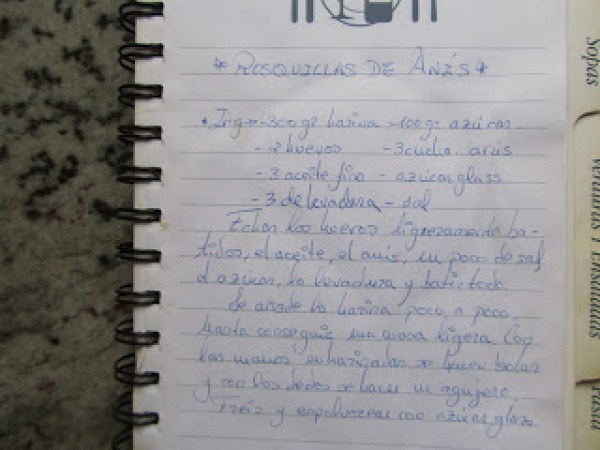 * ROSQUILLAS DE ANÍS *
* Ingre - 300 gr harina - 100 gr azúcar.
- 2 huevos - 3 cucha. anis
- 3 aceite fino - azúcar glass
- 3 de levadura - sal
Echar los huevos ligeramente ba-
tidos, el aceite, el anis, un poco de sal
el azúcar, la levadura y batir todo
Se añade la harina poco, a poco,
hasta conseguir una masa ligera. Con
las manos enharinadas se hacen bolas
y con los dedos se hacen un agujero.
Freir y espolvorear con azúcar glass.
Sopas
Verduras y Ensaladas
Pasta